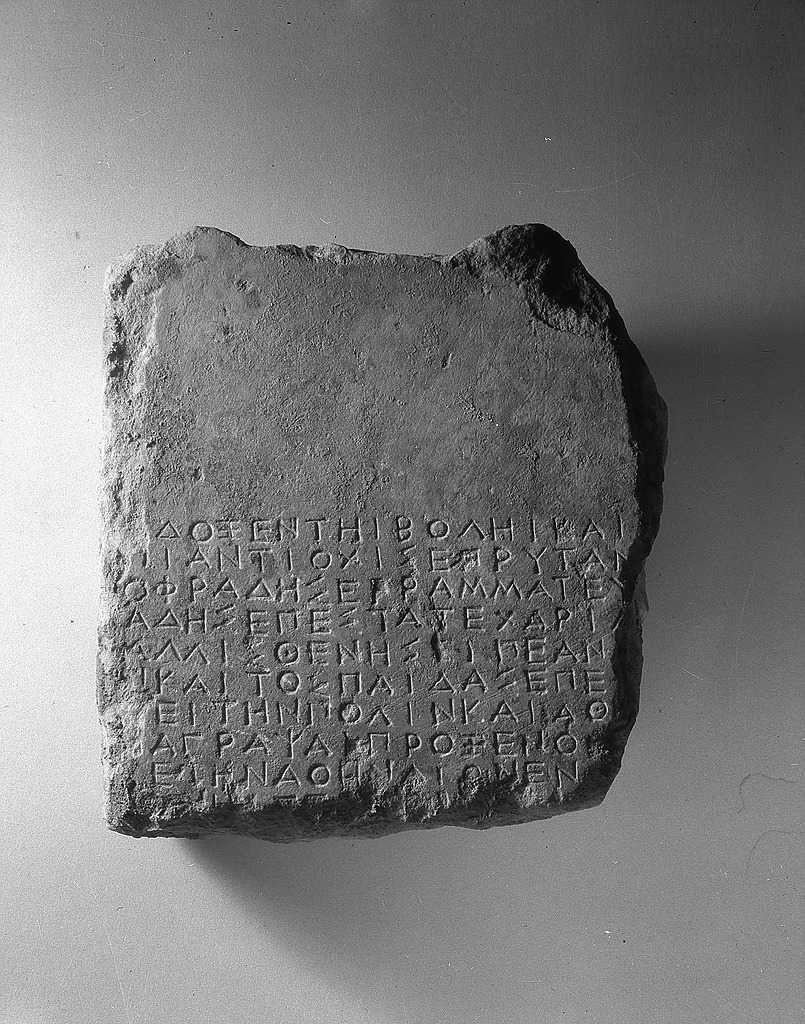 ΔΟΞΕΝΤΗΙΒΟΛΗΙΚΑΙ
ΙΑΝΤΙΟΧΙΣΕΠΡΥΤΑΝ
ΟΦΡΑΔΗΣΕΓΡΑΜΜΑΤΕΥ
ΑΔΗΣΕΠΕΣΤΑΤΕΧΑΡΙ
ΙΣΘΕΝΗΣΕΙΠΕΑΝ
ΙΚΑΙΤΟΣΠΑΙΔΑΣΕΠΕ
ΕΙΤΗΝΠΟΛΙΝΚΑΙΑΘ
ΑΓΡΑΨΑΙΠΡΟΞΕΝΟ
ΕΛΗΝΑΘΗΝΑΙΩΝΕΝ